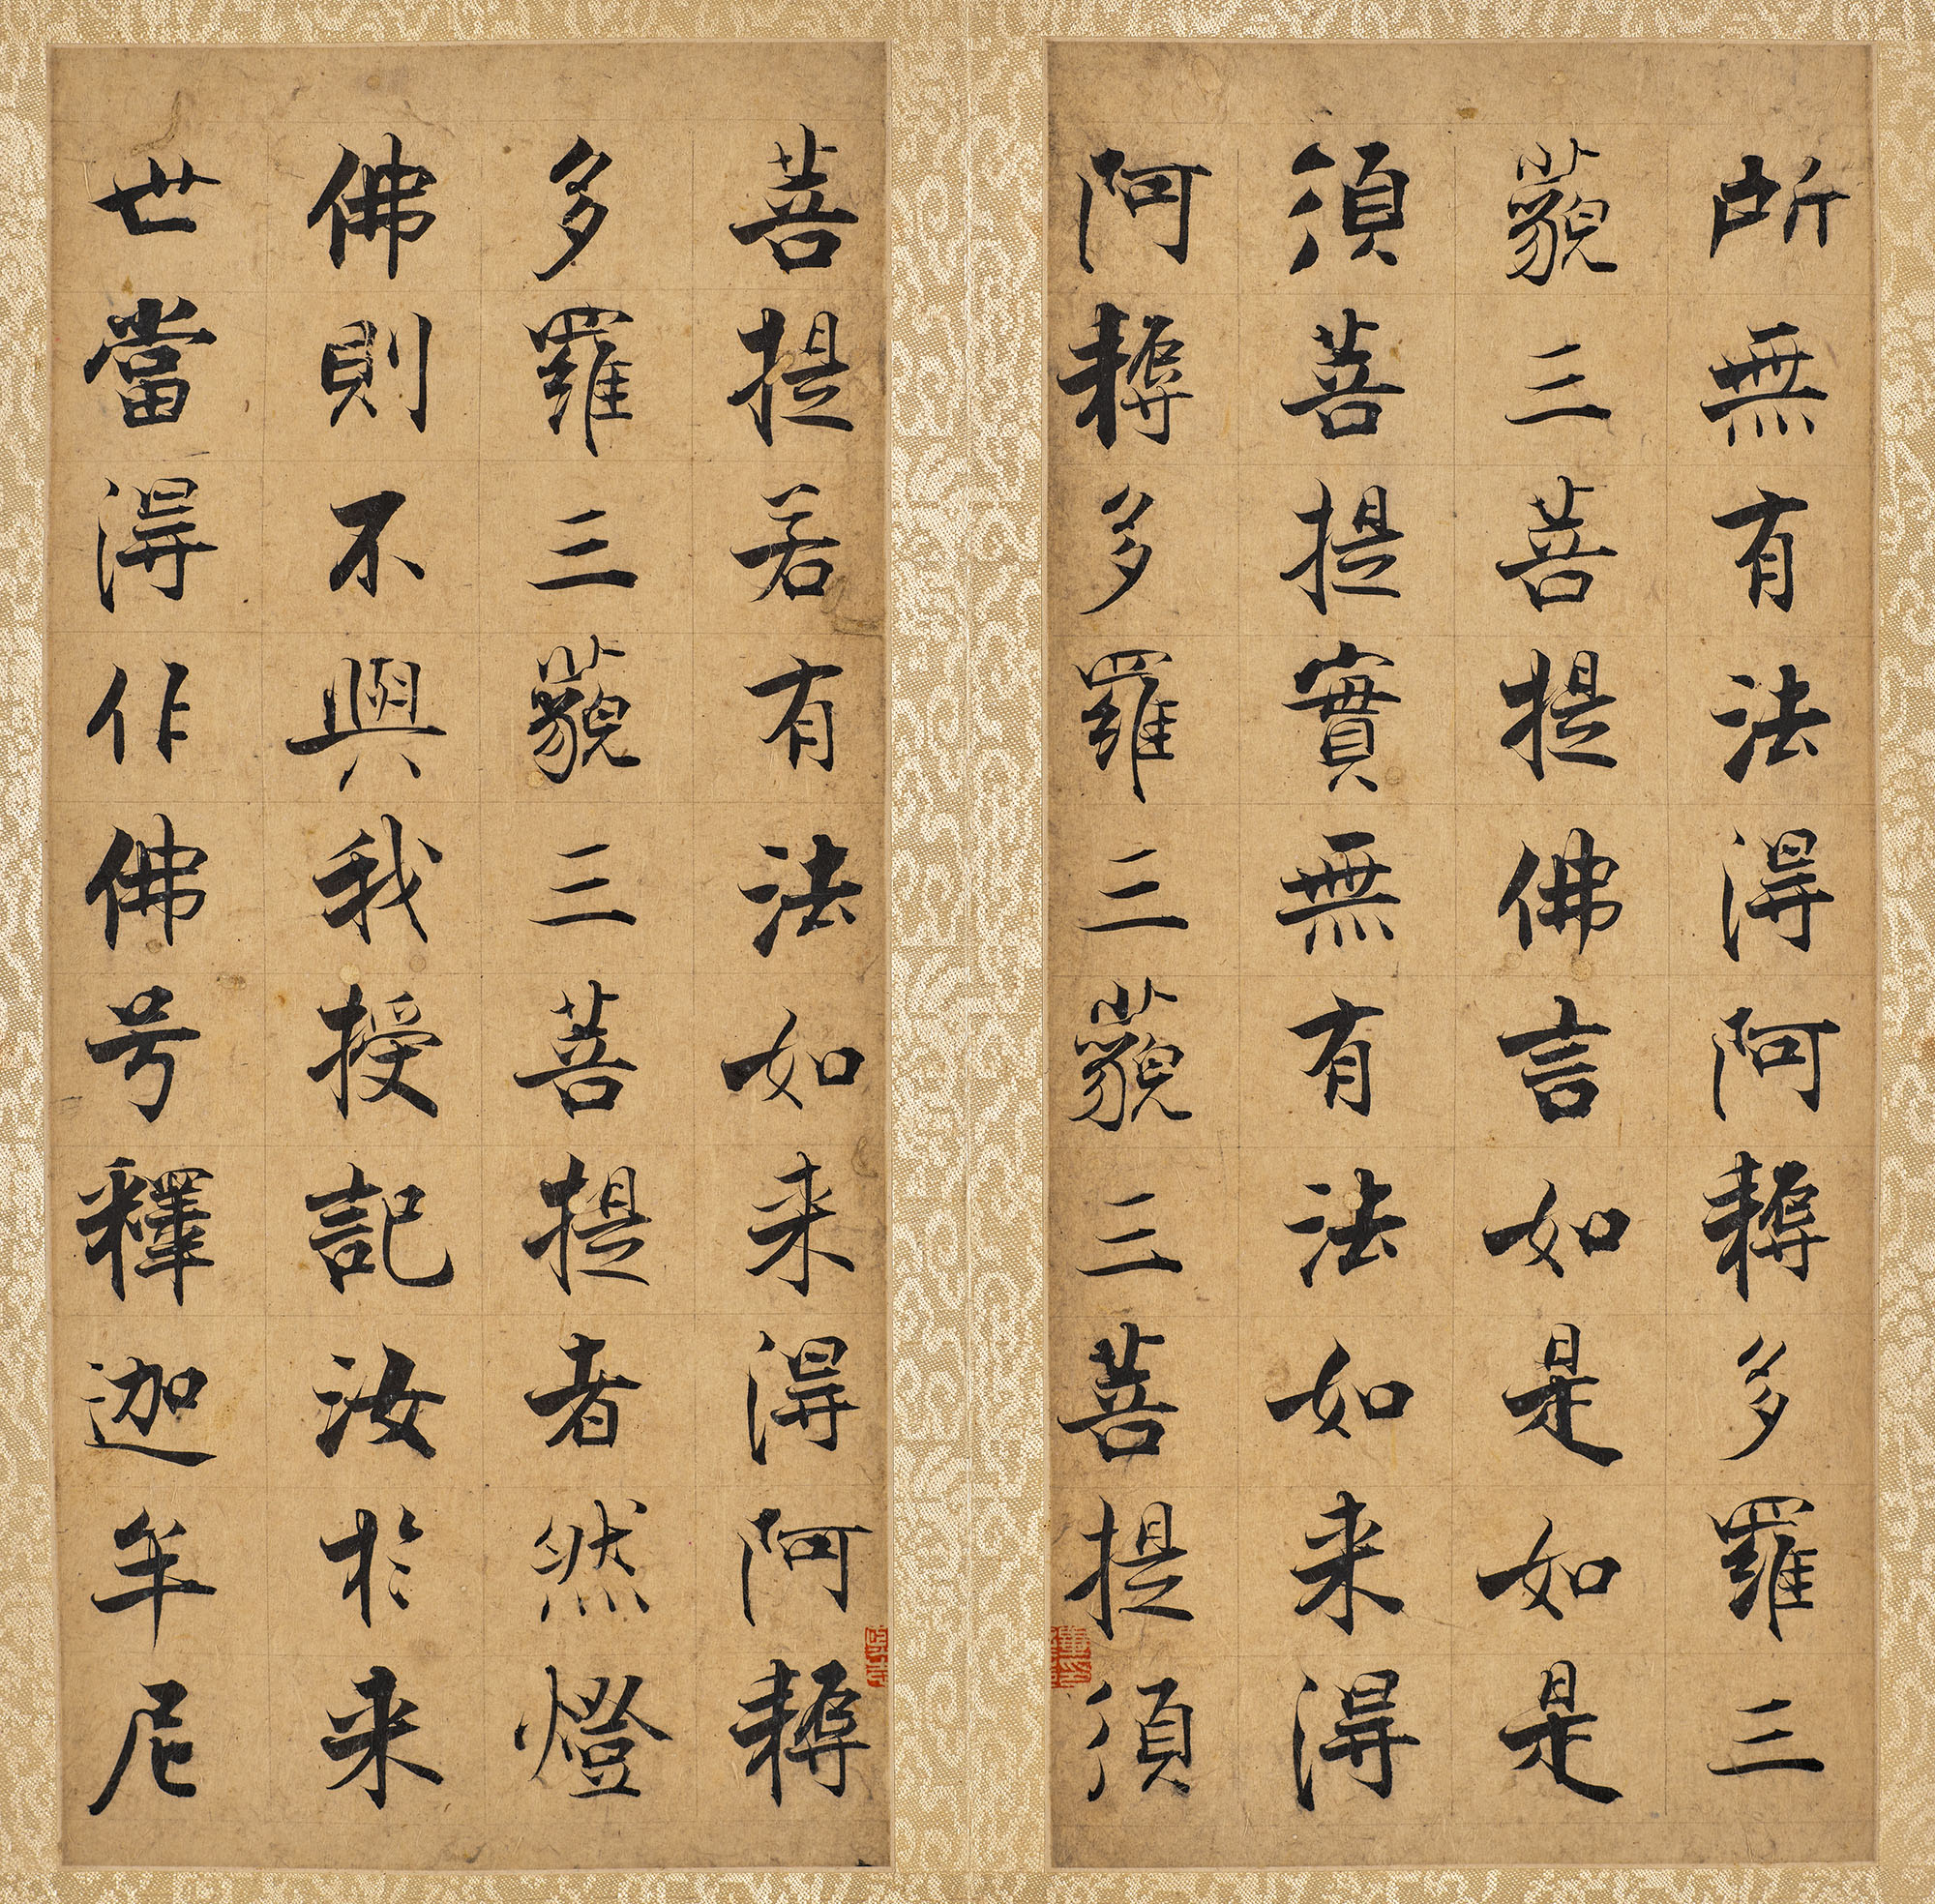 所無有法得阿耨多羅三
藐三菩提佛言如是如是
須菩提實無有法如来得
阿耨多羅三藐三菩提須
菩提若有法如来得阿耨
多羅三藐三菩提者然燈
佛則不與我授記汝於来
世當得作佛号釋迦牟尼